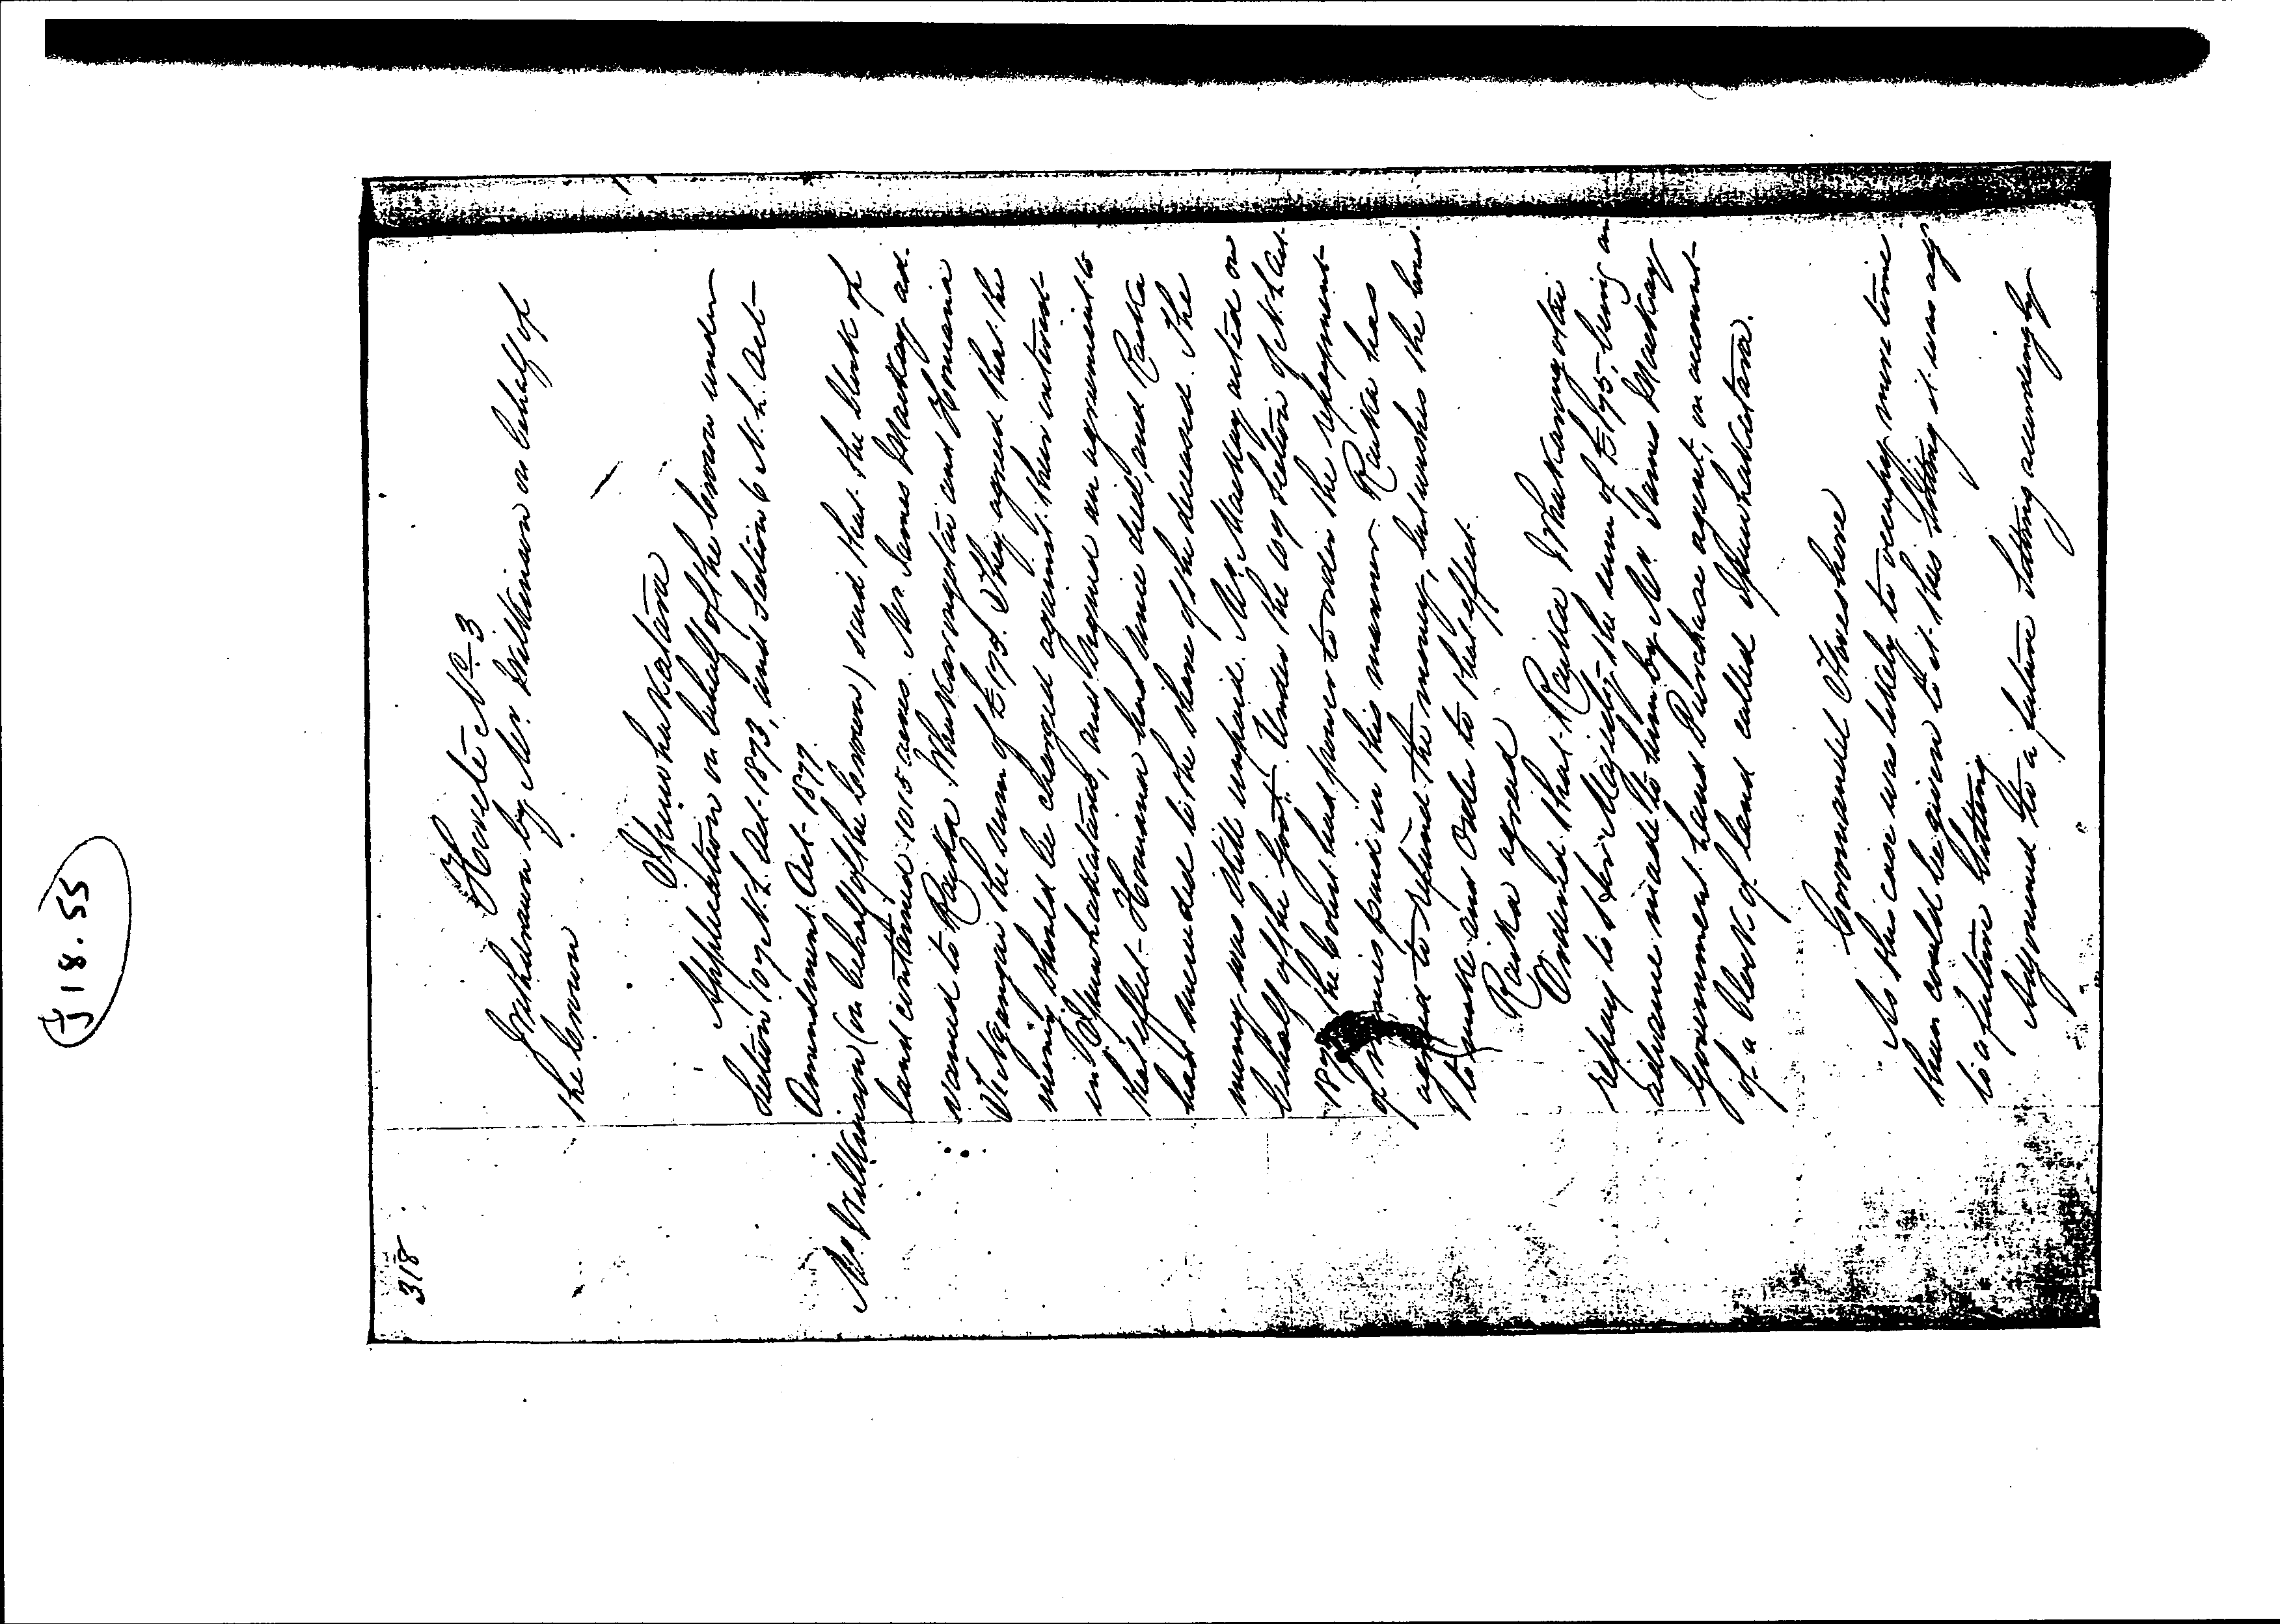 J 18.55
318
Horete No 3
Withdrawn by Mr. Wilkinson on behalf of
the Crown
Application on behalf of the Crown under
Section 107 N.L. Act 1873, and Section 6 N.L. Act
Amendment Act 1877.
Mr. Wilkinson (on behalf of the Crown) said that the block of
land contained 1015 acres. Mr James Mackay ad-
vanced to Raika Whakarongotai and Homania
Te Ngangai the sum of £175. They agreed that the
money should be charged against their interest
in, and signed an agreement to
that effect - Homania had since died, and Raika
had succeeded to the share of the deceased. The
money was still unpaid. Mr. Mackay acted on
behalf of the Govt. Under the 107 section of N.L Act
1873 the Court had power to order the repayment
of monies paid in this manner. Raika has
agreed to refund the money, but wishes the Court
to make and Order to that effect.
Raika agreed
Ordered that Raika Whakarongotai
repay to Her Majesty the sum of £175, being an
advance made to him by Mr. James Mackay
Government Land Purchase agent, on account
of a block of land called
Coromandel Foreshore
As this case was likely to occupy more time
than could be given to it this sitting it was adj
to a future sitting
Adjourned to a future sitting accordingly